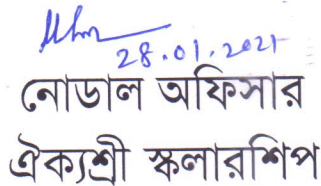 28.01.2021
নোডাল অফিসার
ঐক্যশ্রী স্কলারশিপ